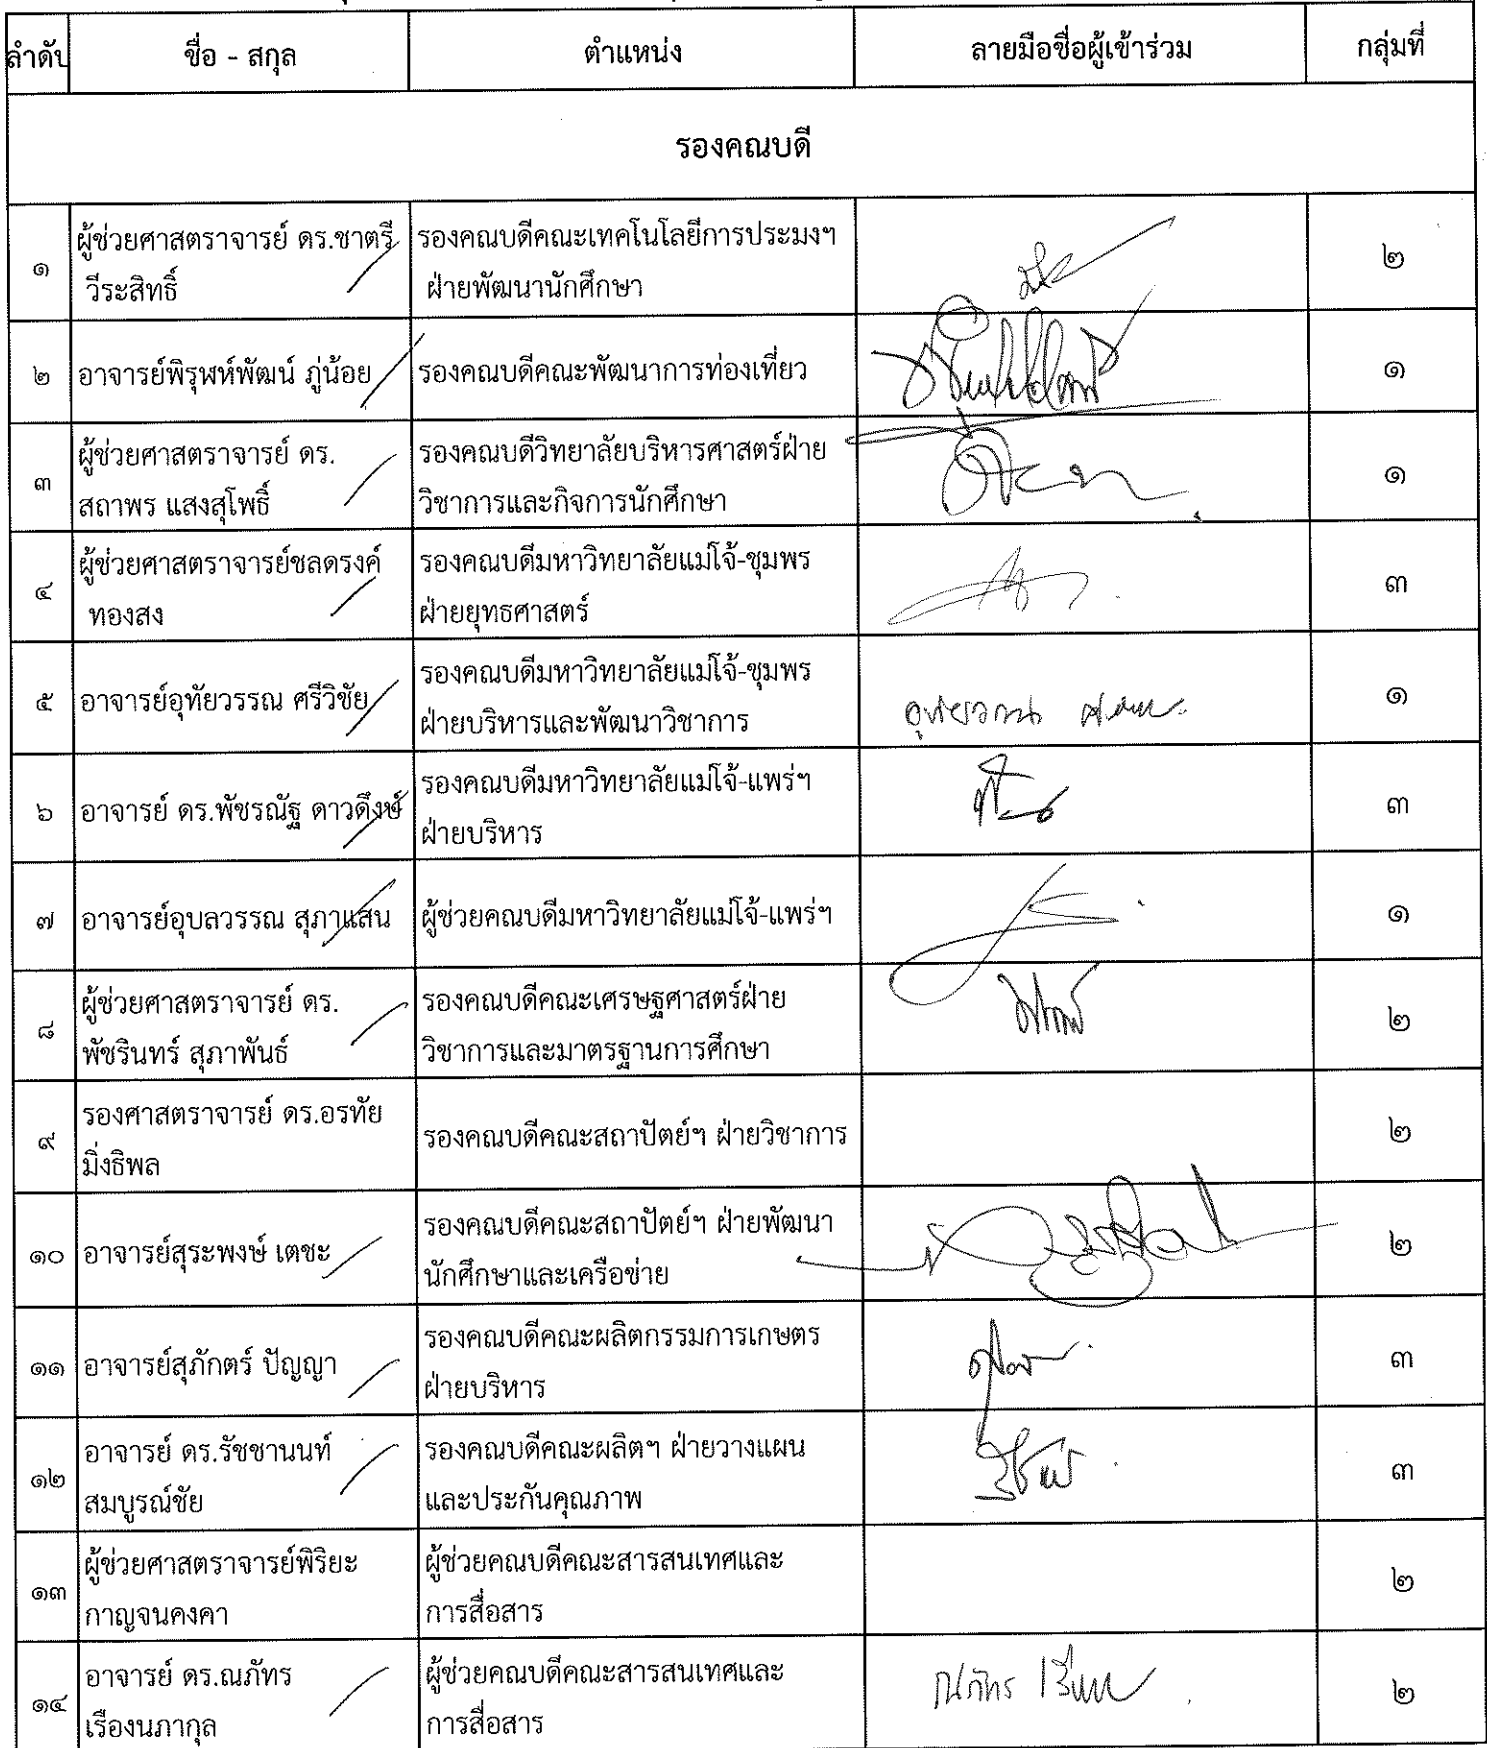 ลำดับ ชื่อ - สกุล ตำแหน่ง ลายมือชื่อผู้เข้าร่วม กลุ่มที่
รองคณบดี
๑ ผู้ช่วยศาสตราจารย์ ดร.ชาตรี รองคณบดีคณะเทคโนโลยีการประมงฯ ๒
วีระสิทธิ์ ฝ่ายพัฒนานักศึกษา
๒ อาจารย์พิรุฬห์พัฒน์ ภู่น้อย รองคณบดีคณะพัฒนาการท่องเที่ยว ๑
๓ ผู้ช่วยศาสตราจารย์ ดร. รองคณบดีวิทยาลัยบริหารศาสตร์ฝ่าย ๑
สถาพร แสงสุโพธิ์ วิชาการและกิจการนักศึกษา
๔ ผู้ช่วยศาสตราจารย์ชลดรงค์ รองคณบดีมหาวิทยาลัยแม่โจ้-ชุมพร ๓
ทองสง ฝ่ายยุทธศาสตร์
๕ อาจารย์อุทัยวรรณ ศรีวิชัย รองคณบดีมหาวิทยาลัยแม่โจ้-ชุมพร ๑
ฝ่ายบริหารและพัฒนาวิชาการ อุทัยวรรณ
๖ อาจารย์ ดร.พัชรณัฐ ดาวดึงษ์ รองคณบดีมหาวิทยาลัยแม่โจ้-แพร่ฯ ๓
ฝ่ายบริหาร
๗ อาจารย์อุบลวรรณ สุภาแสน ผู้ช่วยคณบดีมหาวิทยาลัยแม่โจ้-แพร่ฯ ๑
๘ ผู้ช่วยศาสตราจารย์ ดร. รองคณบดีคณะเศรษฐศาสตร์ฝ่าย ๒
พัชรินทร์ สุภาพันธ์ วิชาการและมาตรฐานการศึกษา
๙ รองศาสตราจารย์ ดร.อรทัย รองคณบดีคณะสถาปัตย์ฯ ฝ่ายวิชาการ ๒
มิ่งธิพล
๑๐ อาจารย์สุระพงษ์ เตชะ รองคณบดีคณะสถาปัตย์ฯ ฝ่ายพัฒนา ๒
นักศึกษาและเครือข่าย
๑๑ อาจารย์สุภักตร์ ปัญญา รองคณบดีคณะผลิตกรรมการเกษตร ๓
ฝ่ายบริหาร
๑๒ อาจารย์ ดร.รัชชานนท์ รองคณบดีคณะผลิตฯ ฝ่ายวางแผน ๓
สมบูรณ์ชัย และประกันคุณภาพ
๑๓ ผู้ช่วยศาสตราจารย์พิริยะ ผู้ช่วยคณบดีคณะสารสนเทศและ ๒
กาญจนคงคา การสื่อสาร
๑๔ อาจารย์ ดร.ณภัทร ผู้ช่วยคณบดีคณะสารสนเทศและ ณภัทร ๒
เรืองนภากุล การสื่อสาร